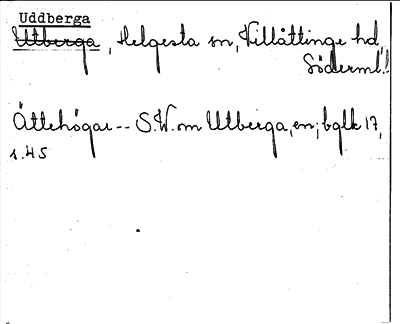 Uddberga
Utberga, Helgesta sn, Villåttinge hd,
Söderml.!
Ättehögar -- S.V. om Utberga, en; bglk 17,
s. 45